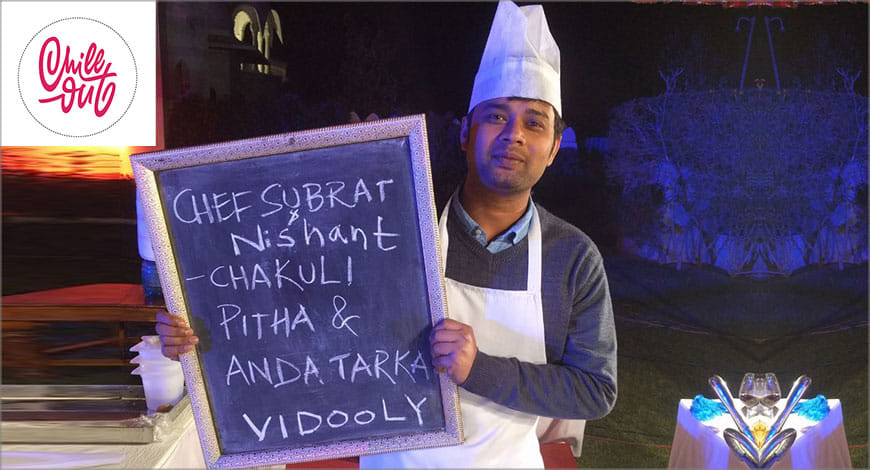 Chill
out
CHEF SUBRAT
&
Nishant
- CHAKULI
PITHA &
ANDA TARKA
VIDOOLY